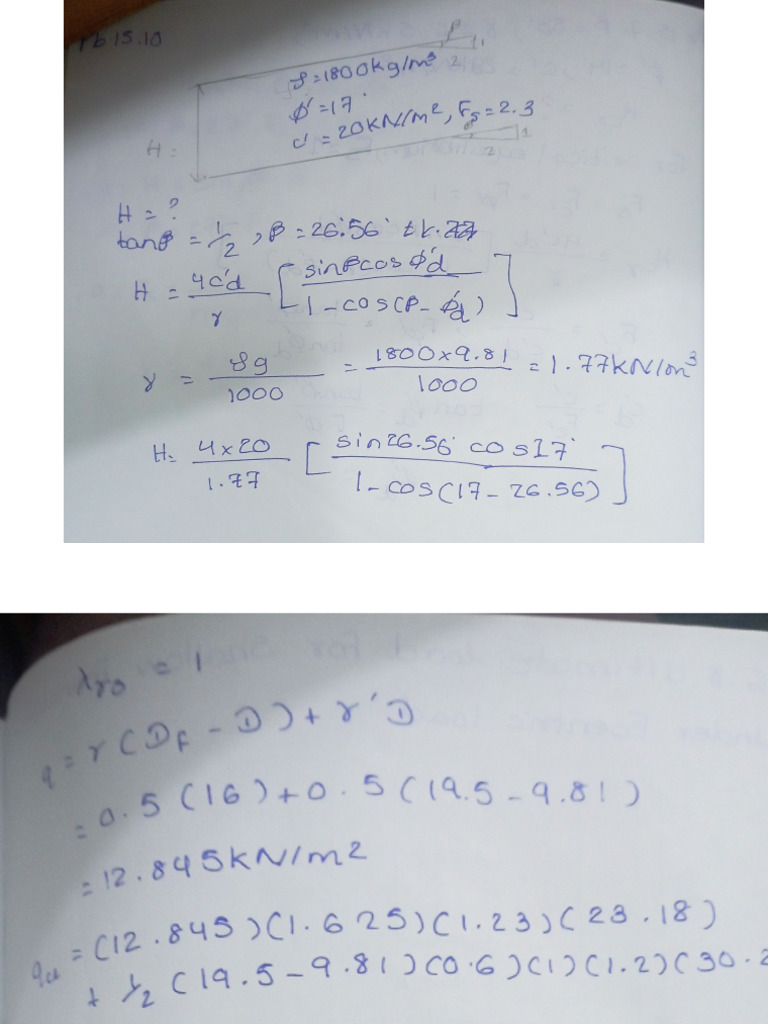 Pb 15.10
β 1
2
ρ = 1800kg/m³
ϕ' = 17°
c' = 20KN/m², Fs = 2.3
1
2
H =
H = ?
tanβ = 1/2 , β = 26.56°
H = 4c'd/γ [ sinβcosϕ'd / 1 - cos(β - ϕ'd) ]
γ = ρg/1000 = 1800×9.81/1000 = 1.77KN/m³
H = 4×20/1.77 [ sin26.56° cos17° / 1 - cos(17 - 26.56) ]
λγD = 1
q = γ(DF - D) + γ'D
= 0.5(16) + 0.5(19.5 - 9.81)
= 12.845KN/m2
qu = (12.845)(1.625)(1.23)(23.18)
+ 1/2 (19.5 - 9.81)(0.6)(1)(1.2)(30.2